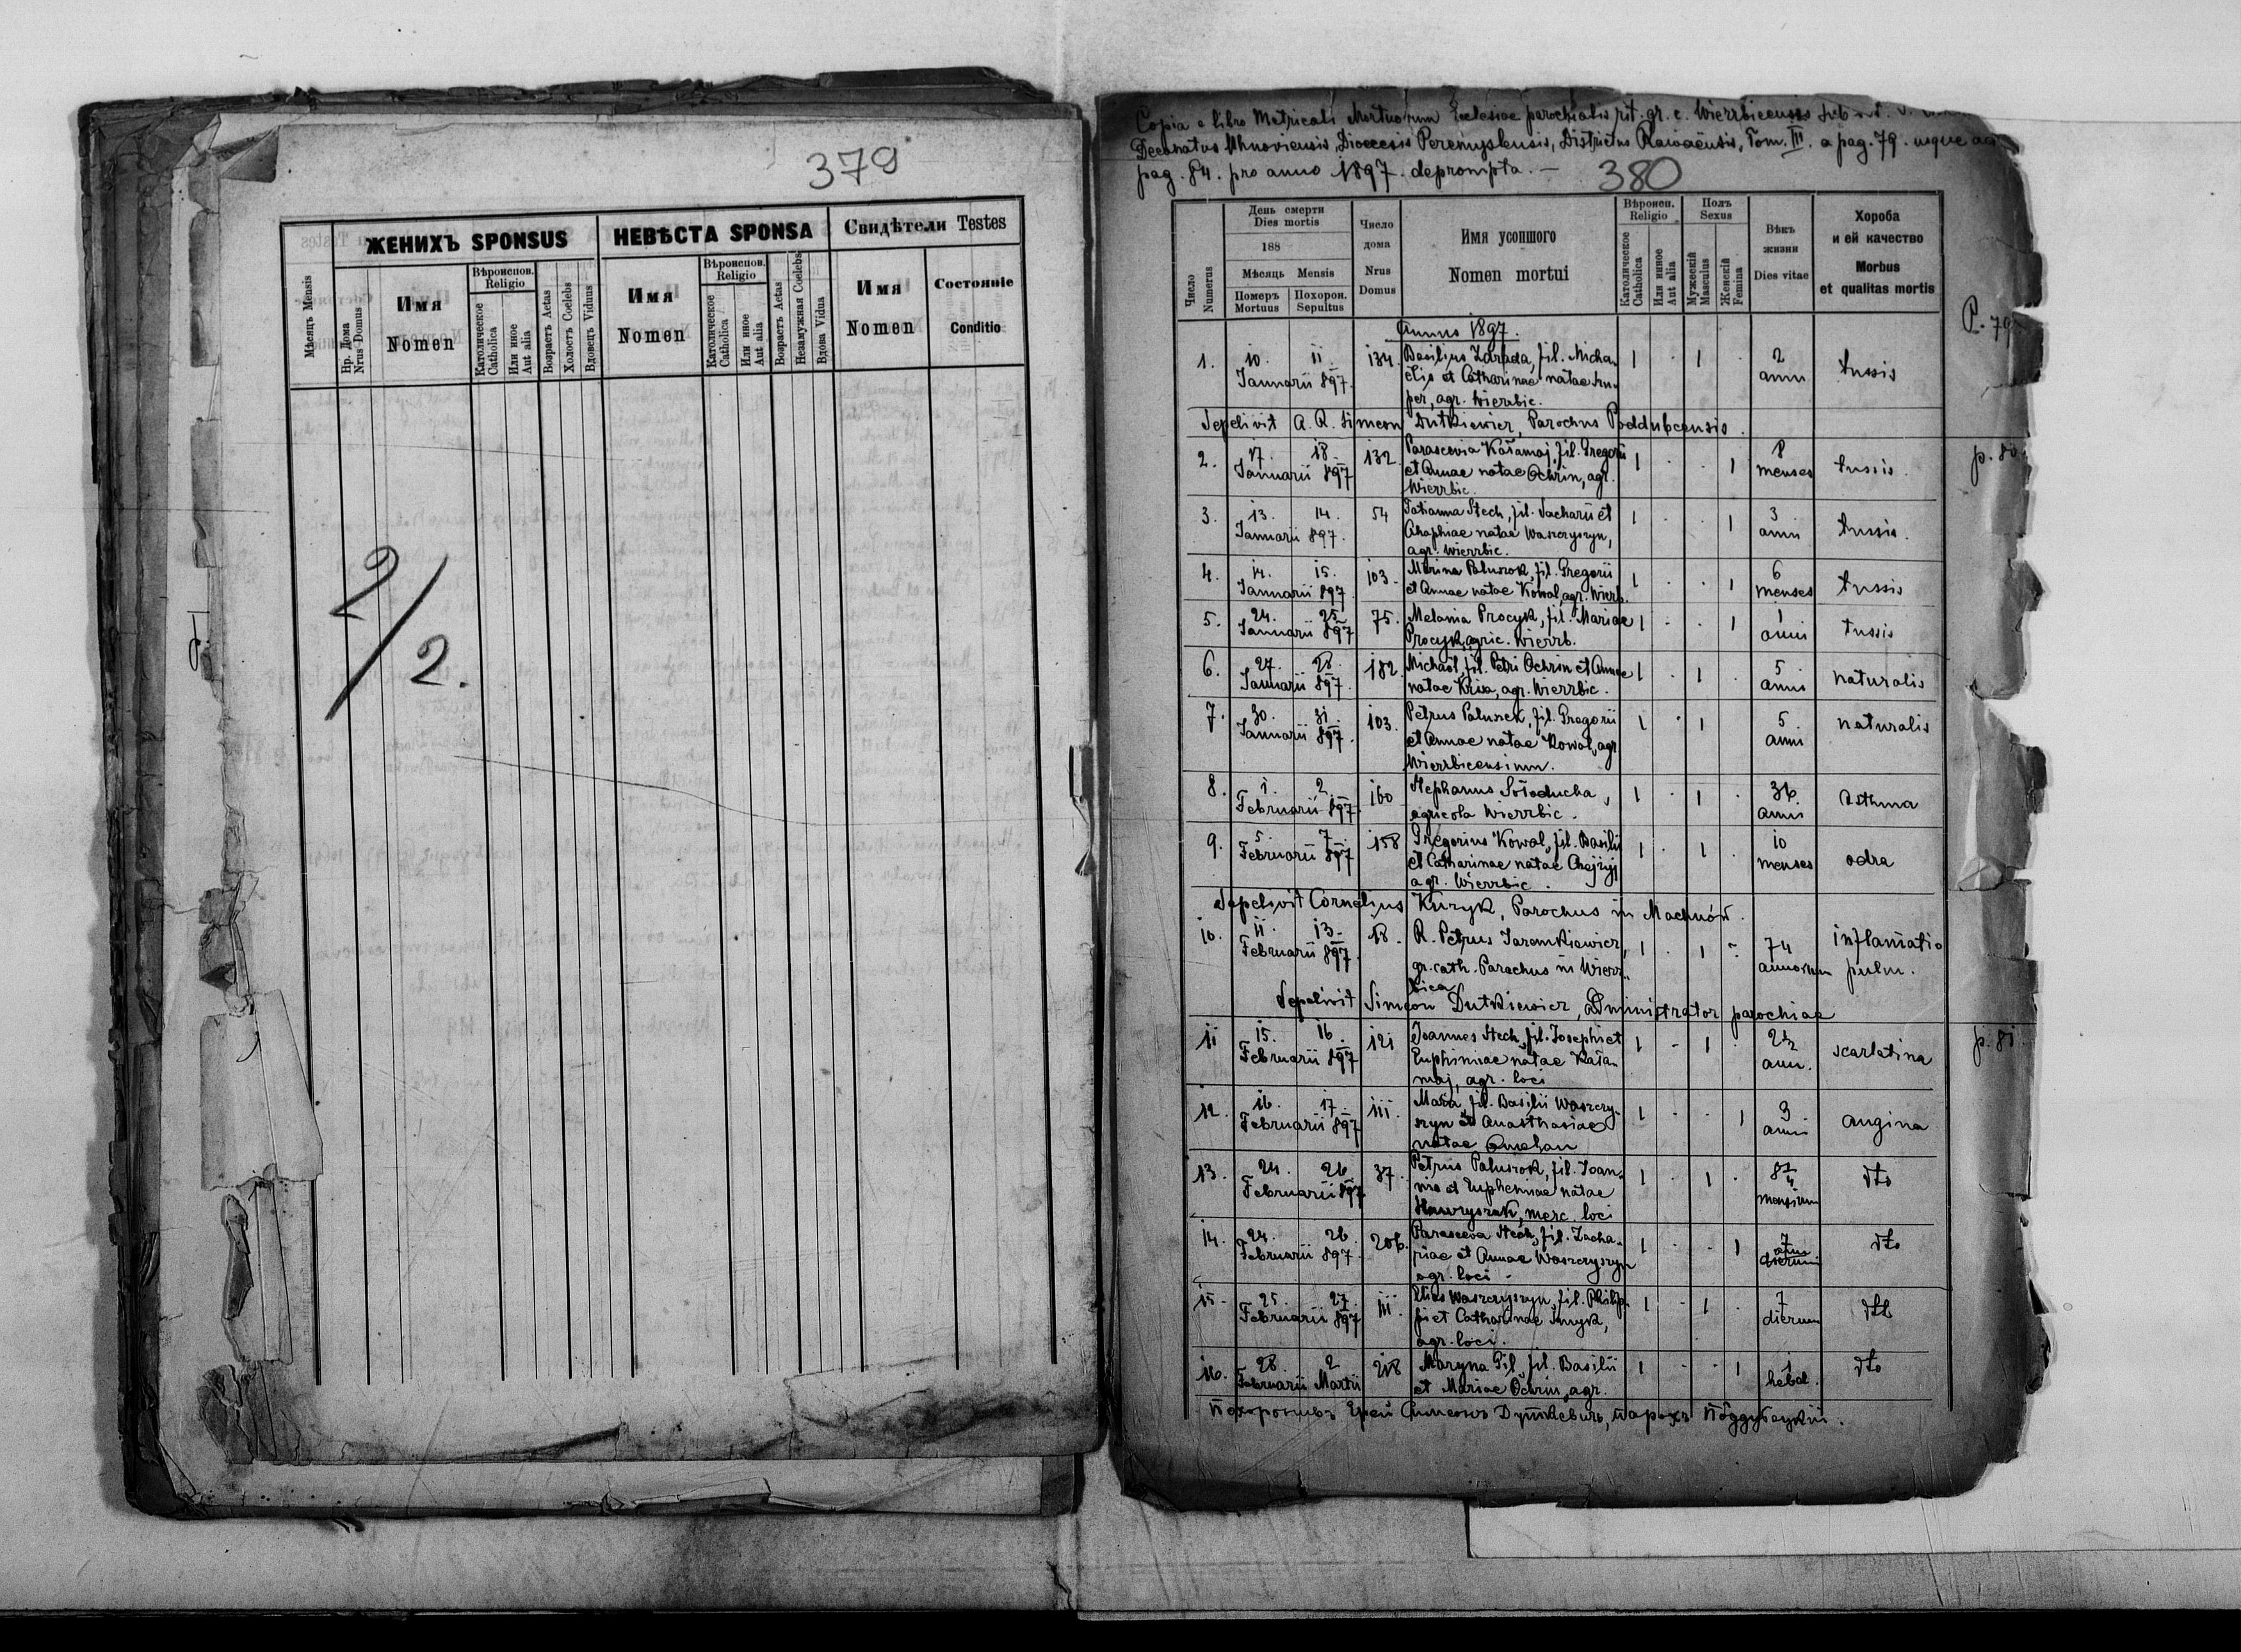 379
Мѣсяцъ Mensis
ЖЕНИХЪ SPONSUS
НЕВѢСТА SPONSA
Свидѣтели Testes
Нр. Дома
Nrus Domus
Имя
Nomen
Вѣроиспов.
Religio
Католическое
Catholica
Или иное
Aut alia
Возрастъ Aetas
Холостъ Coelebs
Вдовецъ Viduus
Имя
Nomen
Вѣроиспов.
Religio
Католическое
Catholica
Или иное
Aut alia
Возрастъ Aetas
Незамужная Coelebs
Вдова Vidua
Имя
Nomen
Состояніе
Conditio
2/2.
Copia e libro Metricali Mortuorum Ecclesiae parochialis rit. gr. c. Wierzbicensis
Decanatus Uhnoviensis, Dioecesis Peremysliensis, Districtus Rawaënsis, Tom. III. a pag. 79. usque ad
pag. 84. pro anno 1897. deprompta. —
380
Число
Numerus
День смерти
Dies mortis
188
Мѣсяць Mensis
Померъ
Mortuus
Похорон.
Sepultus
Число
дома
Nrus
Domus
Имя усопшого
Nomen mortui
Вѣроисп.
Religio
Католическое
Catholica
Или иное
Aut alia
Полъ
Sexus
Мужескій
Masculus
Женскій
Femina
Вѣкъ
жизни
Dies vitae
Хороба
и ей качество
Morbus
et qualitas mortis
Annus 1897.
P. 79.
1. 10. 11. 134. Basilius Zaráda, fil. Micha- 1 . 1 . 2
Januarii 897. elis et Catharinae natae anni tussis
per, agr. Wierzbic.
Sepelivit A. R. Simeon Dutkiewicz, Parochus Poddubcensis.
2. 17. 18. 132. Parascevia Kałamaj, fil. Gregorii 1 . . 1 8 p. 80.
Januarii 897 et Annae natae Ochrin, agr. menses tussis.
Wierzbic.
3. 13. 14. 54 Tatianna Stech, fil. Zacharii et 1 . . 1 3
Januarii 897. Ahaphiae natae Waszczyszyn, anni tussis.
agr. Wierzbic.
4. 14. 15. 103. Marina Paluszok, fil. Gregorii 1 . . 1 6
Januarii 897. et Annae natae Kowal, agr. Wierzb. menses tussis
5. 24. 25. 75. Melania Procyk, fil. Mariae 1 . . 1 1
Januarii 897 Procyk, agric. Wierzb. anni tussis
6. 27. 28. 182. Michaël, fil. Petri Ochrin et Annae 1 . 1 . 5
Januarii 897. natae Kriva, agr. Wierzbic. annis naturalis
7. 30. 31. 103. Petrus Paluszek, fil. Gregorii 1 . 1 5. naturalis
Januarii 897. et Annae natae Kowal, agr. anni
Wierzbicensium.
8. 1. 2. 160 Stephanus Sołoducha, 1 . 1 . 36.
Februarii 897. agricola Wierzbic. annis asthma
9. 5. 7. 158 Gregorius Kowal, fil. Basilii 1 . 1 . 10
Februarii 897 et Catharinae natae menses odra
agr. Wierzbic.
Sepelivit Cornelius Kuzyk, Parochus in Machnów.
10. 11. 13. 18. R. Petrus Jaremkiewicz, 1 . 1 - 74 inflamatio
Februarii 897. gr. cath. Parochus in Wierz- annorum pulm.
bica
Sepelivit Simeon Dutkiewicz, Administrator parochiae
11 15. 16. 121 Joannes Stech, fil. Josephi et 1 - 1 . 2½ p. 81.
Februarii 897 Euphimiae natae Kała- ann. scarlatina
maj, agr. loci
12. 16. 17. 111. Maria, fil. Basilii Waszczy- 1 . . 1 3
Februarii 897 szyn et Anasthasiae anni angina
natae
13. 24. 26. 37. Petrus Paluszok, fil. Joan- 1 . 1 . dto
Februarii 897 nis et Eupheminae natae mensium
Hawryszak, merc. loci
14. 24. 26. 206. Parasceva Stech, fil. Zacha- 1 . . 1 7 dto
Februarii 897. riae et Annae Waszczyszyn dierum
agr. loci -
15. 25. 27. 111. Elias Waszczyszyn, fil. Philip- 1 . 1 . 7 dto
Februarii 897 pi et Catharinae Smyk, dierum
agr. loci.
16. 28. 2 218 Maryna Gil, fil. Basilii 1 . . 1 1 dto
Februarii Martii et Mariae Ochrin, agr. hebd.
Похоронивъ Ерей Симеонъ Дуткевичъ, парохъ Поддубецкій.